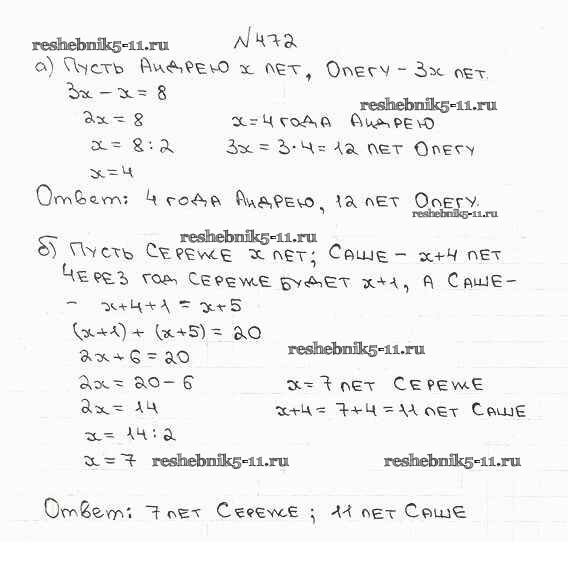 reshebnik5-11.ru
№472
а) Пусть Андрею x лет, Олегу - 3x лет.
3x - x = 8
reshebnik5-11.ru
2x = 8
x = 4 года Андрею
x = 8 : 2
3x = 3·4 = 12 лет Олегу
x = 4
Ответ: 4 года Андрею, 12 лет Олегу.
reshebnik5-11.ru
reshebnik5-11.ru
б) Пусть Сереже x лет; Саше - x+4 лет
Через год Сереже будет x+1, а Саше -
- x+4+1 = x+5
(x+1) + (x+5) = 20
2x+6 = 20
reshebnik5-11.ru
2x = 20-6
x = 7 лет Сереже
2x = 14
x+4 = 7+4 = 11 лет Саше
x = 14 : 2
x = 7
reshebnik5-11.ru
reshebnik5-11.ru
Ответ: 7 лет Сереже; 11 лет Саше